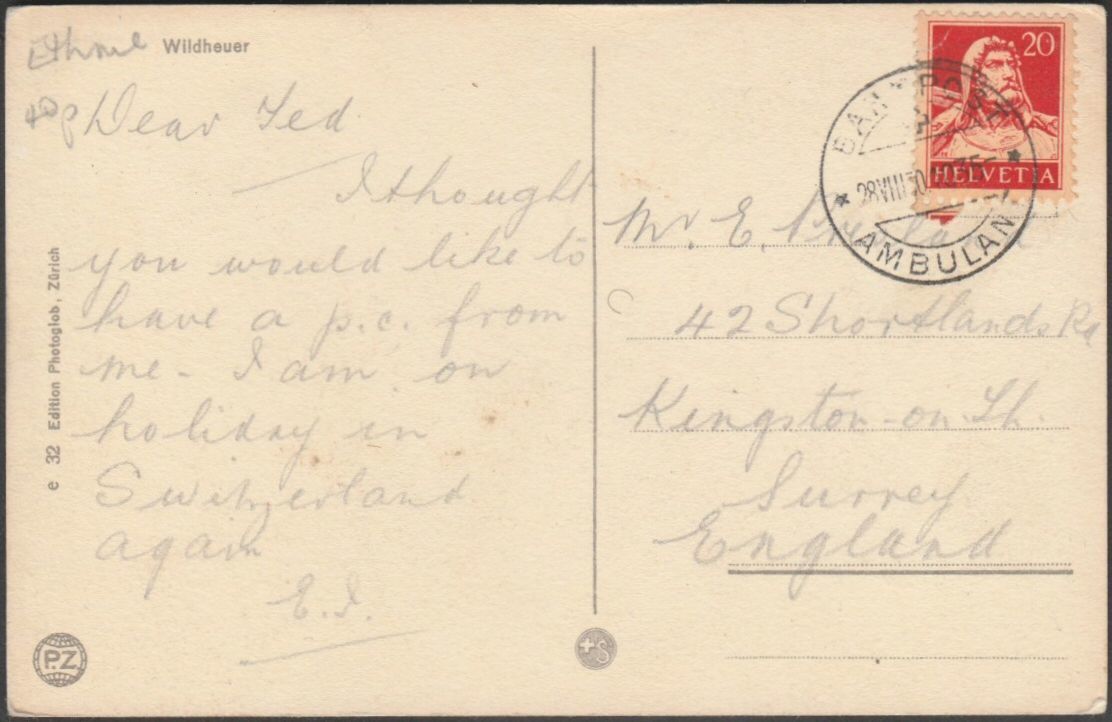 Wildheuer
40p
Dear Ted
I thought
you would like to
have a p.c. from
me - I am on
holiday in
Switzerland
again
E.I.
e 32 Edition Photoglob, Zürich
P.Z.
+S
20
HELVETIA
BAHNPOST
28.VIII.30
AMBULANT
Mr. E.
42 Shortlands Rd
Kingston-on-Th.
Surrey
England